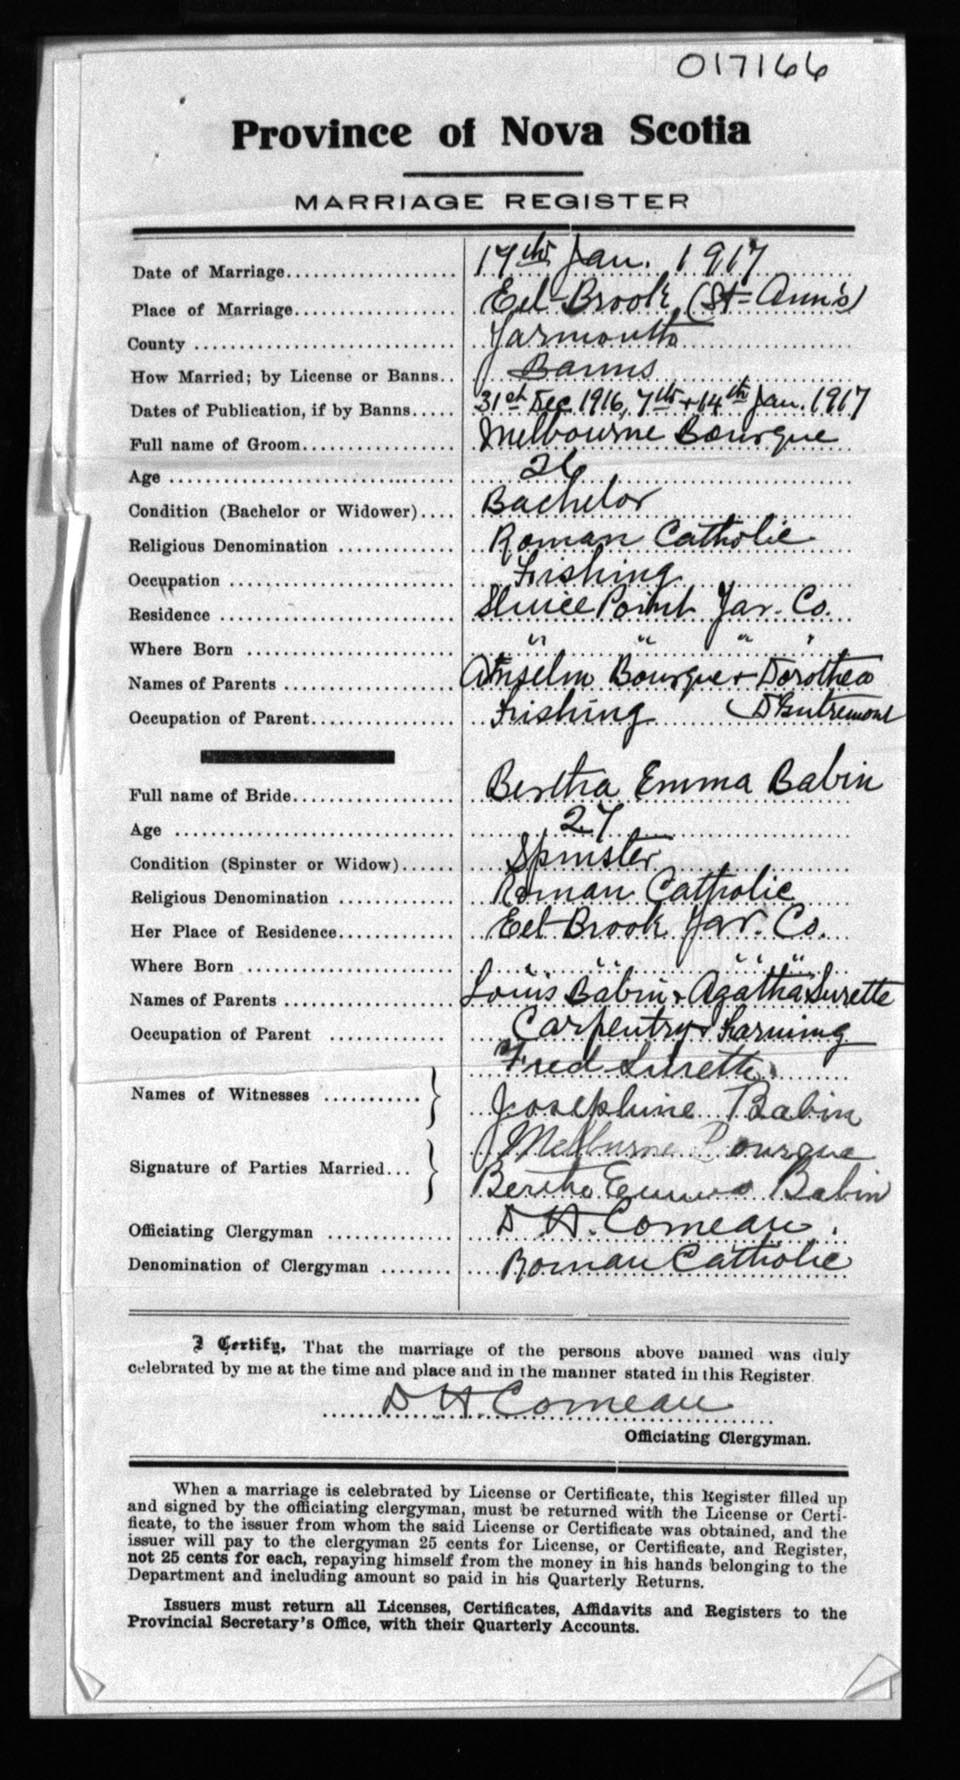 017166
Province of Nova Scotia
MARRIAGE REGISTER
Date of Marriage.................... 17th Jan. 1917
Place of Marriage................... Eel-Brook (St=Ann's)
County .............................. Yarmouth
How Married; by License or Banns.. Banns
Dates of Publication, if by Banns..... 31st Dec 1916, 7th + 14th Jan. 1917
Full name of Groom.................. Melbourne Bourque
Age ................................. 26
Condition (Bachelor or Widower).... Bachelor
Religious Denomination ............. Roman Catholic
Occupation .......................... Fishing
Residence ........................... Sluice Point Yar. Co.
Where Born ........................ " " " "
Names of Parents .................... Anselm Bourque + Dorothea
Occupation of Parent................. Fishing D'Entremont
Full name of Bride................... Bertha Emma Babin
Age ................................. 27
Condition (Spinster or Widow)...... Spinster
Religious Denomination ............. Roman Catholic
Her Place of Residence............. Eel-Brook Yar. Co.
Where Born ........................ " " " "
Names of Parents .................... Louis Babin + Agatha Surette
Occupation of Parent ............. Carpentry + Farming
Fred Surette
Names of Witnesses ...........
Josephine Babin
Melburne Bourque
Signature of Parties Married...
Bertha Emma Babin
Officiating Clergyman .............. D H. Comeau.
Denomination of Clergyman ........ Roman Catholic
I Certify, That the marriage of the persons above named was duly
celebrated by me at the time and place and in the manner stated in this Register.
D H Comeau
Officiating Clergyman.
When a marriage is celebrated by License or Certificate, this Register filled up
and signed by the officiating clergyman, must be returned with the License or Certi-
ficate, to the issuer from whom the said License or Certificate was obtained, and the
issuer will pay to the clergyman 25 cents for License, or Certificate, and Register,
not 25 cents for each, repaying himself from the money in his hands belonging to the
Department and including amount so paid in his Quarterly Returns.
Issuers must return all Licenses, Certificates, Affidavits and Registers to the
Provincial Secretary's Office, with their Quarterly Accounts.